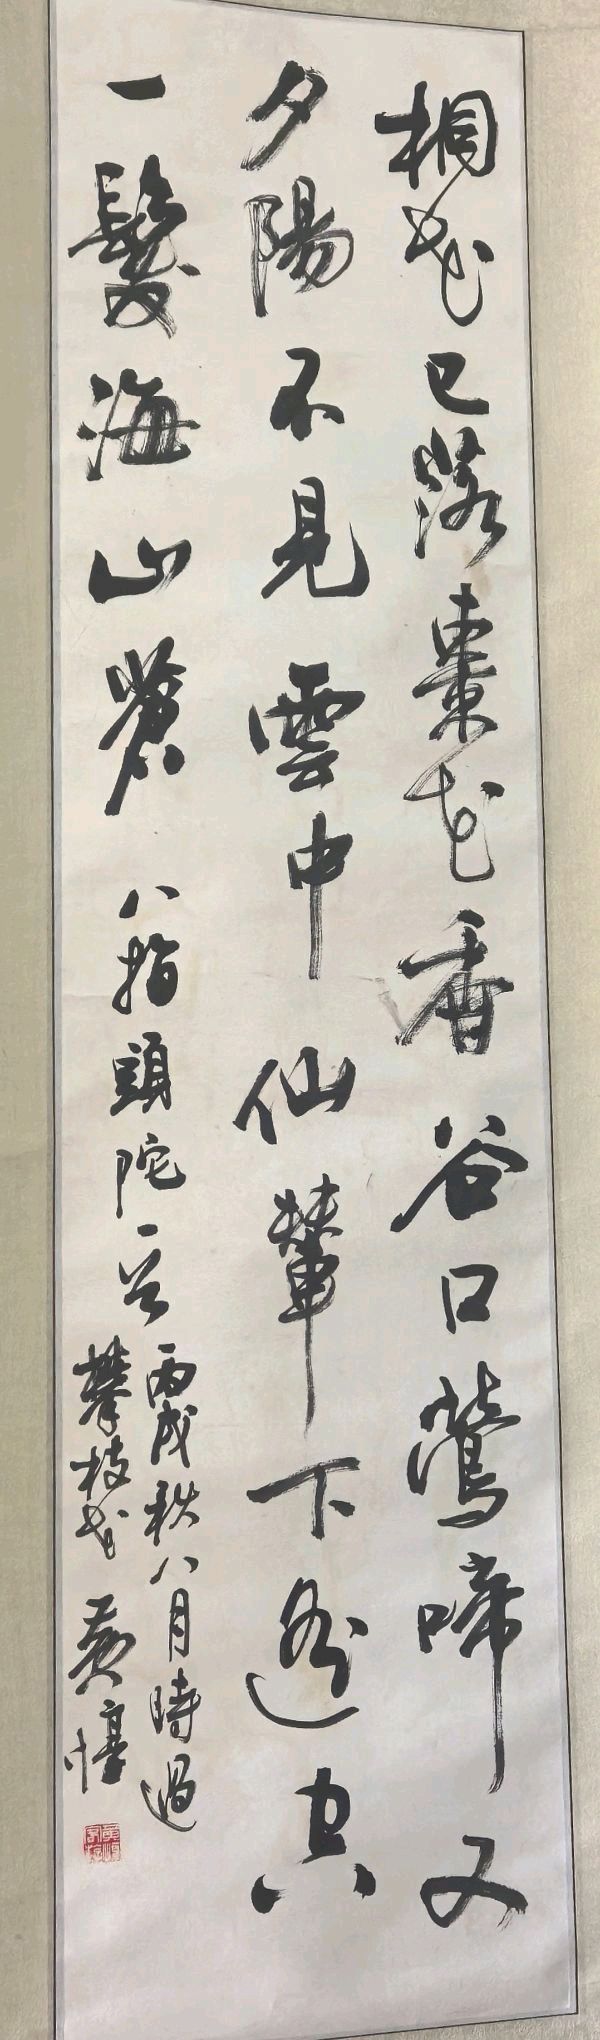 桐花已落棗花香谷口鶯啼又
夕陽不見雲中仙輦下遙空
一髮海山蒼
八指頭陀一首
丙戌秋八月時過
攀枝花 黄惇